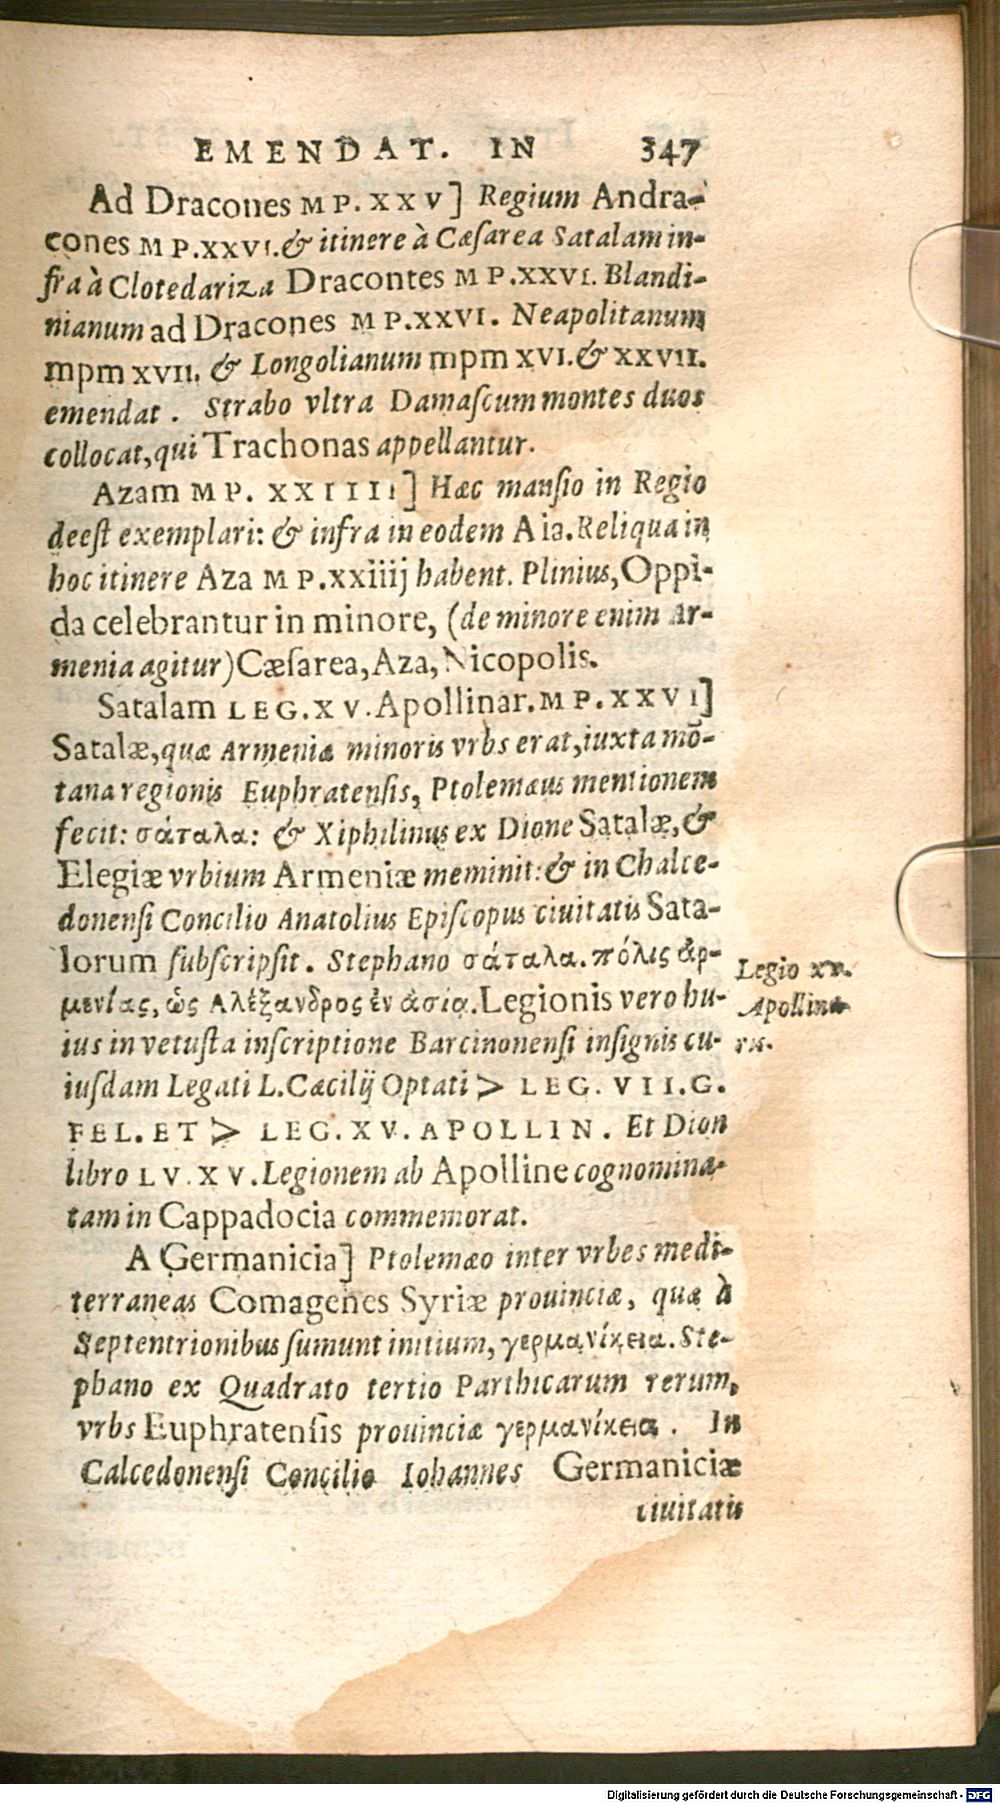 EMENDAT. IN 347
Ad Dracones MP. XXV] Regium Andra-
cones MP.XXVI. & itinere à Cæsarea Satalam in-
fra à Clotedariza Dracontes MP.XXVI. Blandi-
nianum ad Dracones MP.XXVI. Neapolitanum
mpm XVII. & Longolianum mpm XVI. & XXVII.
emendat. Strabo vltra Damascum montes duos
collocat, qui Trachonas appellantur.
Azam MP. XXIIII] Hæc mansio in Regio
deest exemplari: & infra in eodem Aia. Reliqua in
hoc itinere Aza MP.xxiiij habent. Plinius, Oppi-
da celebrantur in minore, (de minore enim Ar-
menia agitur) Cæsarea, Aza, Nicopolis.
Satalam LEG.XV. Apollinar. MP.XXVI]
Satalæ, quæ Armeniæ minoris vrbs erat, iuxta mõ-
tana regionis Euphratensis, Ptolemæus mentionem
fecit: σάταλα: & Xiphilinus ex Dione Satalæ, &
Elegiæ vrbium Armeniæ meminit: & in Chalce-
donensi Concilio Anatolius Episcopus ciuitatis Sata-
lorum subscripsit. Stephano σάταλα. πόλις ἀρ-
μενίας, ὡς Αλέξανδρος ἐν ἀσίᾳ. Legionis vero hu-
ius in vetusta inscriptione Barcinonensi insignis cu-
iusdam Legati L. Cæcilij Optati > LEG. VII.G.
FEL. ET > LEG. XV. APOLLIN. Et Dion
libro LV. XV. Legionem ab Apolline cognomina-
tam in Cappadocia commemorat.
Legio xv.
Apollina-
ris.
A Germanicia] Ptolemæo inter vrbes medi-
terraneas Comagenes Syriæ prouinciæ, quæ à
Septentrionibus sumunt initium, γερμανίκεια. Ste-
phano ex Quadrato tertio Parthicarum rerum,
vrbs Euphratensis prouinciæ γερμανίκεια. In
Calcedonensi Concilio Iohannes Germaniciæ
ciuitatis
Digitalisierung gefördert durch die Deutsche Forschungsgemeinschaft - DFG